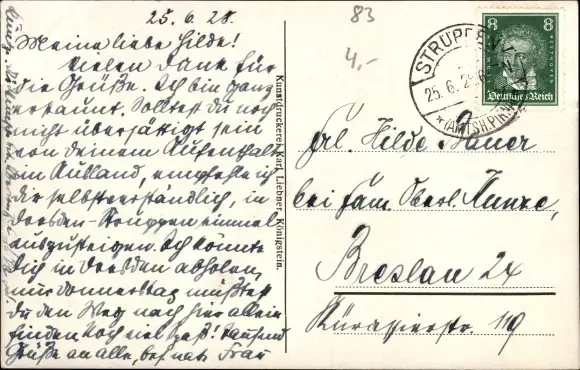 25.6.28.
Meine liebe Hilde!
Vielen Dank für
die Grüße. Ich bin ganz
erstaunt. Solltest du noch
nicht übersättigt sein
von deinem Aufenthalt
im Ausland, empfehle ich
dir selbstverständlich, in
Dresden-Struppen einmal
auszusteigen. Ich könnte
dich in Dresden abholen,
nur Donnerstag müßtest
du den Weg nach hier allein
finden. Noch viel Spaß! Tausend
Grüße an alle, bes. Frau
Kunstdruckerei Karl Liebner, Königstein.
83
4,-
STRUPPEN
25.6.28
(AMTSH. PIRNA)
8 8
BEETHOVEN
Deutsches Reich
Frl. Hilde Bauer
bei Fam. Oberl. Kunze,
Breslau 24
Kürassierstr. 119